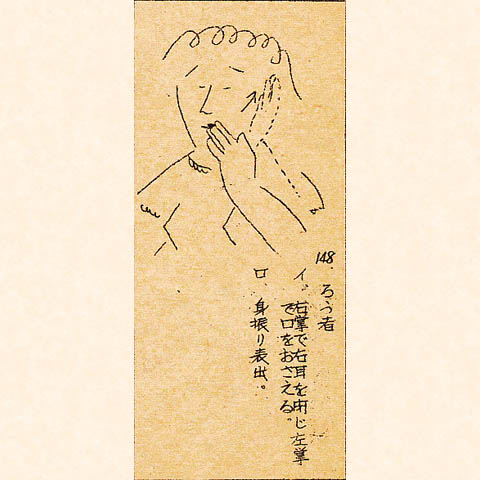 148. ろう者
イ. 右掌で右耳を閉じ左掌
で口をおさえる。
ロ. 身振り表出。